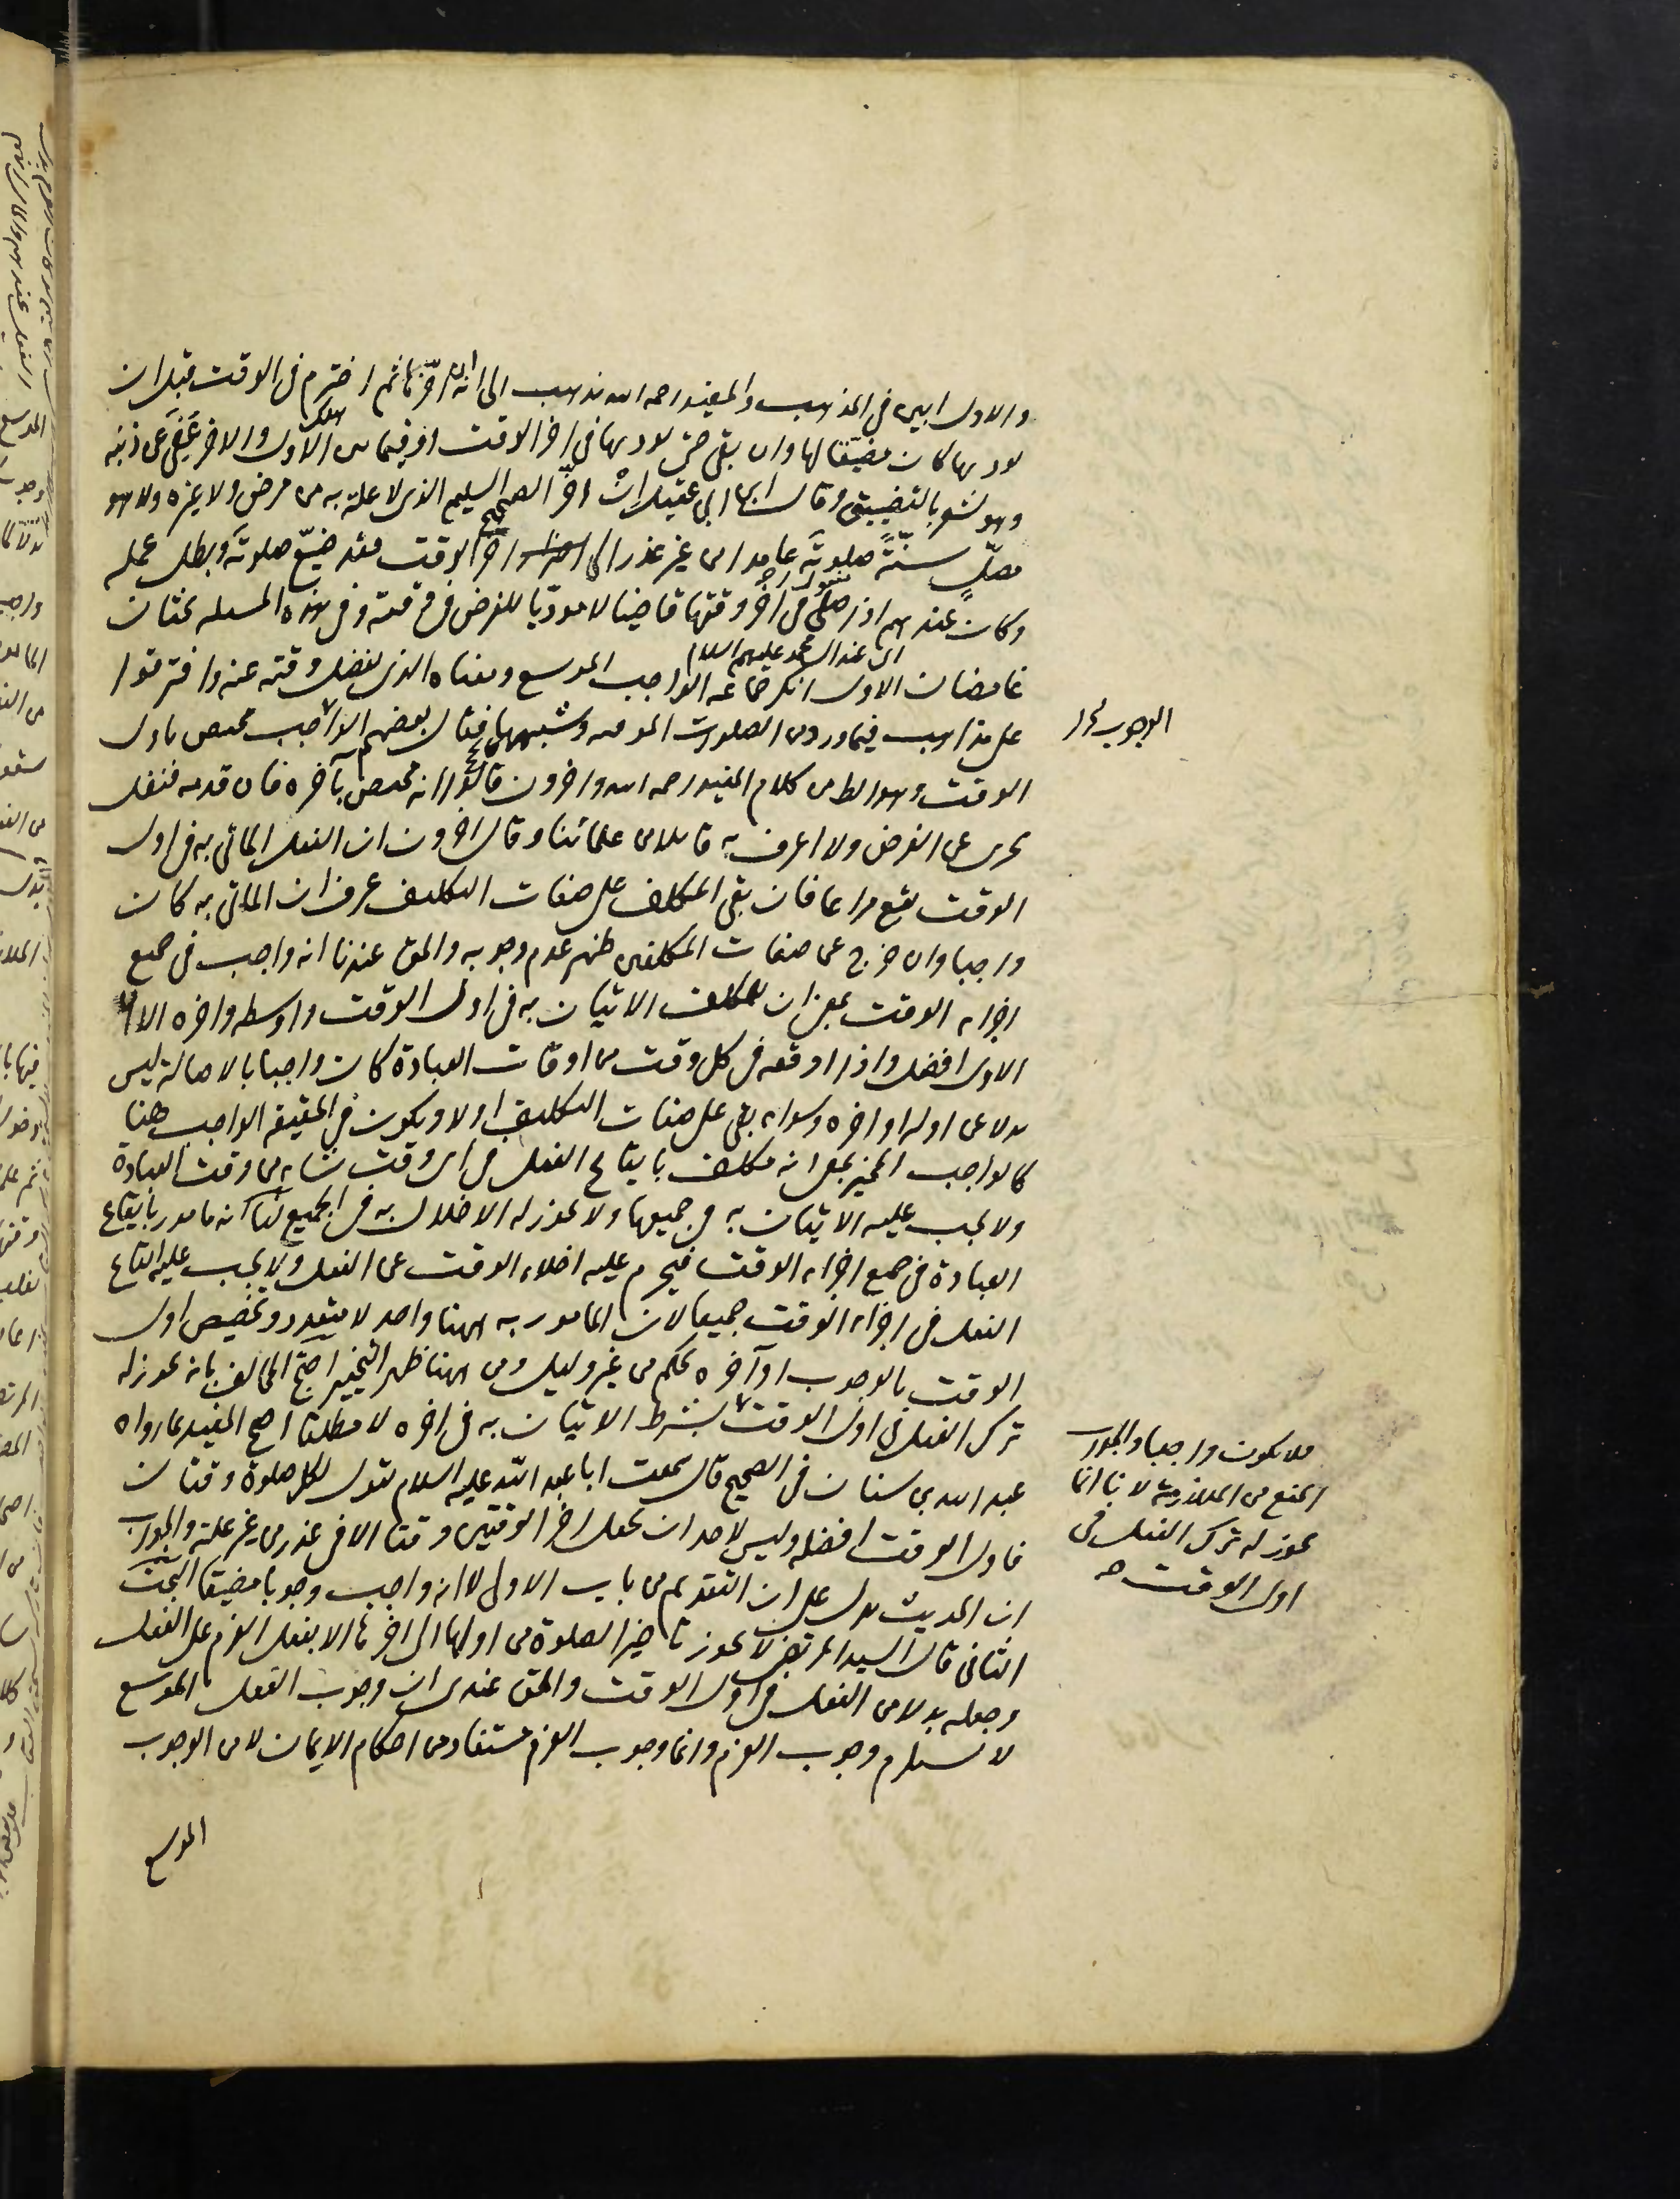 والاول ابين في المذهب والمفيد رحمه الله يذهب الى انه ان اخرها ثم اخترم في الوقت قبل ان
يوديها كان مضيعا لها وان بقى حتى يوديها في اخر الوقت او فيما بين الاول والاخر عفى عن ذنبه
وهو يشعر بالتضييق وقال ابن ابي عقيل ان اخر الصحيح السليم الذي لا علة به من مرض ولا غيره ولا هو
مصل سنة صلوته عامدا من غير عذر الى اخر الوقت فقد ضيع صلوته وبطل عمله
وكان عندهم اذا صلى في اخر وقتها قاضيا لا موديا للفرض في وقته وفي هذه المسئله بحثان
اى عند ال محمد عليهم السلام
غامضان الاول انكر جماعه الواجب الموسع ومعناه الذي يفضل وقته عنه وافترقوا
على مذاهب فيما ورد من الصلوات الموقته وشبهها فقال بعضهم الواجب مختص باول
الوقت وهو الظ من كلام المفيد رحمه الله واخرون قالوا انه مختص بآخره فان قدمه فنفل
يجزى عن الفرض ولا اعرف به قائلا من علمائنا وقال اخرون ان الفعل الماتى به في اول
الوقت يقع مراعا فان بقى المكلف على صفات التكليف عرف ان الماتى به كان
واجبا وان خرج عن صفات المكلفين ظهر عدم وجوبه والحق عندنا انه واجب في جميع
اجزاء الوقت بمعنى ان للمكلف الاتيان به في اول الوقت واوسطه واخره الا ان
الاول افضل واذا اوقعه في كل وقت من اوقات العبادة كان واجبا بالاصالة ليس
بدلا عن اوله او اخره وسواء بقى على صفات التكليف او لا ويكون في الحقيقه الواجب هنا
كالواجب المخير بمعنى انه مكلف بايقاع الفعل في اى وقت شاء من وقت العبادة
ولا يجب عليه الاتيان به في جميعها ولا يجوز له الاخلال به في الجميع لنا انه مامور بايقاع
العبادة في جميع اجزاء الوقت فيحرم عليه اخلاء الوقت عن الفعل ولا يجب عليه ايقاع
الفعل في اجزاء الوقت جميعا لان المامور به ههنا واحد لا متعدد وتخصيص اول
الوقت بالوجوب او آخره تحكم من غير دليل ومن ههنا ظهر التخيير احتج المخالف بانه يجوز له
ترك الفعل في اول الوقت بشرط الاتيان به في اخره لا مطلقا احتج المفيد بما رواه
عبد الله بن سنان في الصحيح قال سمعت ابا عبد الله عليه السلام يقول لكل صلوة وقتان
فاول الوقت افضله وليس لاحد ان يجعل اخر الوقتين وقتا الا في عذر من غير علة والجواب
ان الحديث يدل على ان التقديم من باب الاولى لا انه واجب وجوبا مضيقا البحث
الثانى قال السيد المرتضى لا يجوز تاخير الصلوة من اولها الى اخرها الا بفعل العزم على الفعل
وجعله بدلا من الفعل في اول الوقت والحق عندى ان وجوب الفعل الموسع
لا يستلزم وجوب العزم وانما وجوب العزم مستفاد من احكام الايمان لا من الوجوب
الموسع
الوجوب
فلا يكون واجبا والجواب
المنع من الملازمة لانا انما
يجوز له ترك الفعل في
اول الوقت صح